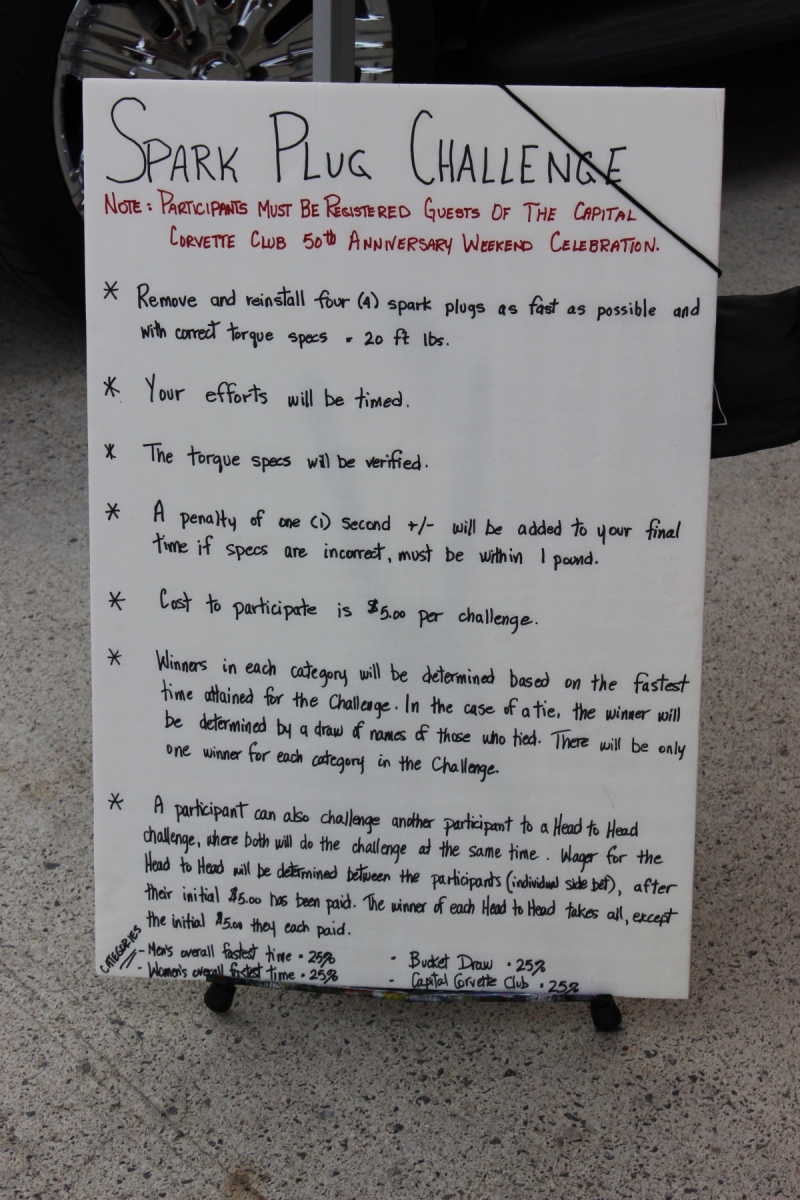 SPARK PLUG CHALLENGE
NOTE: PARTICIPANTS MUST BE REGISTERED GUESTS OF THE CAPITAL
CORVETTE CLUB 50th ANNIVERSARY WEEKEND CELEBRATION.
* Remove and reinstall four (4) spark plugs as fast as possible and
with correct torque specs - 20 ft lbs.
* Your efforts will be timed.
* The torque specs will be verified.
* A penalty of one (1) second +/- will be added to your final
time if specs are incorrect, must be within 1 pound.
* Cost to participate is $5.00 per challenge.
* Winners in each category will be determined based on the fastest
time attained for the Challenge. In the case of a tie, the winner will
be determined by a draw of names of those who tied. There will be only
one winner for each category in the Challenge.
* A participant can also challenge another participant to a Head to Head
challenge, where both will do the challenge at the same time. Wager for the
Head to Head will be determined between the participants (individual side bet), after
their initial $5.00 has been paid. The winner of each Head to Head takes all, except
the initial $5.00 they each paid.
CATEGORIES
- Men's overall fastest time - 25%
- Women's overall fastest time - 25%
- Bucket Draw - 25%
- Capital Corvette Club - 25%